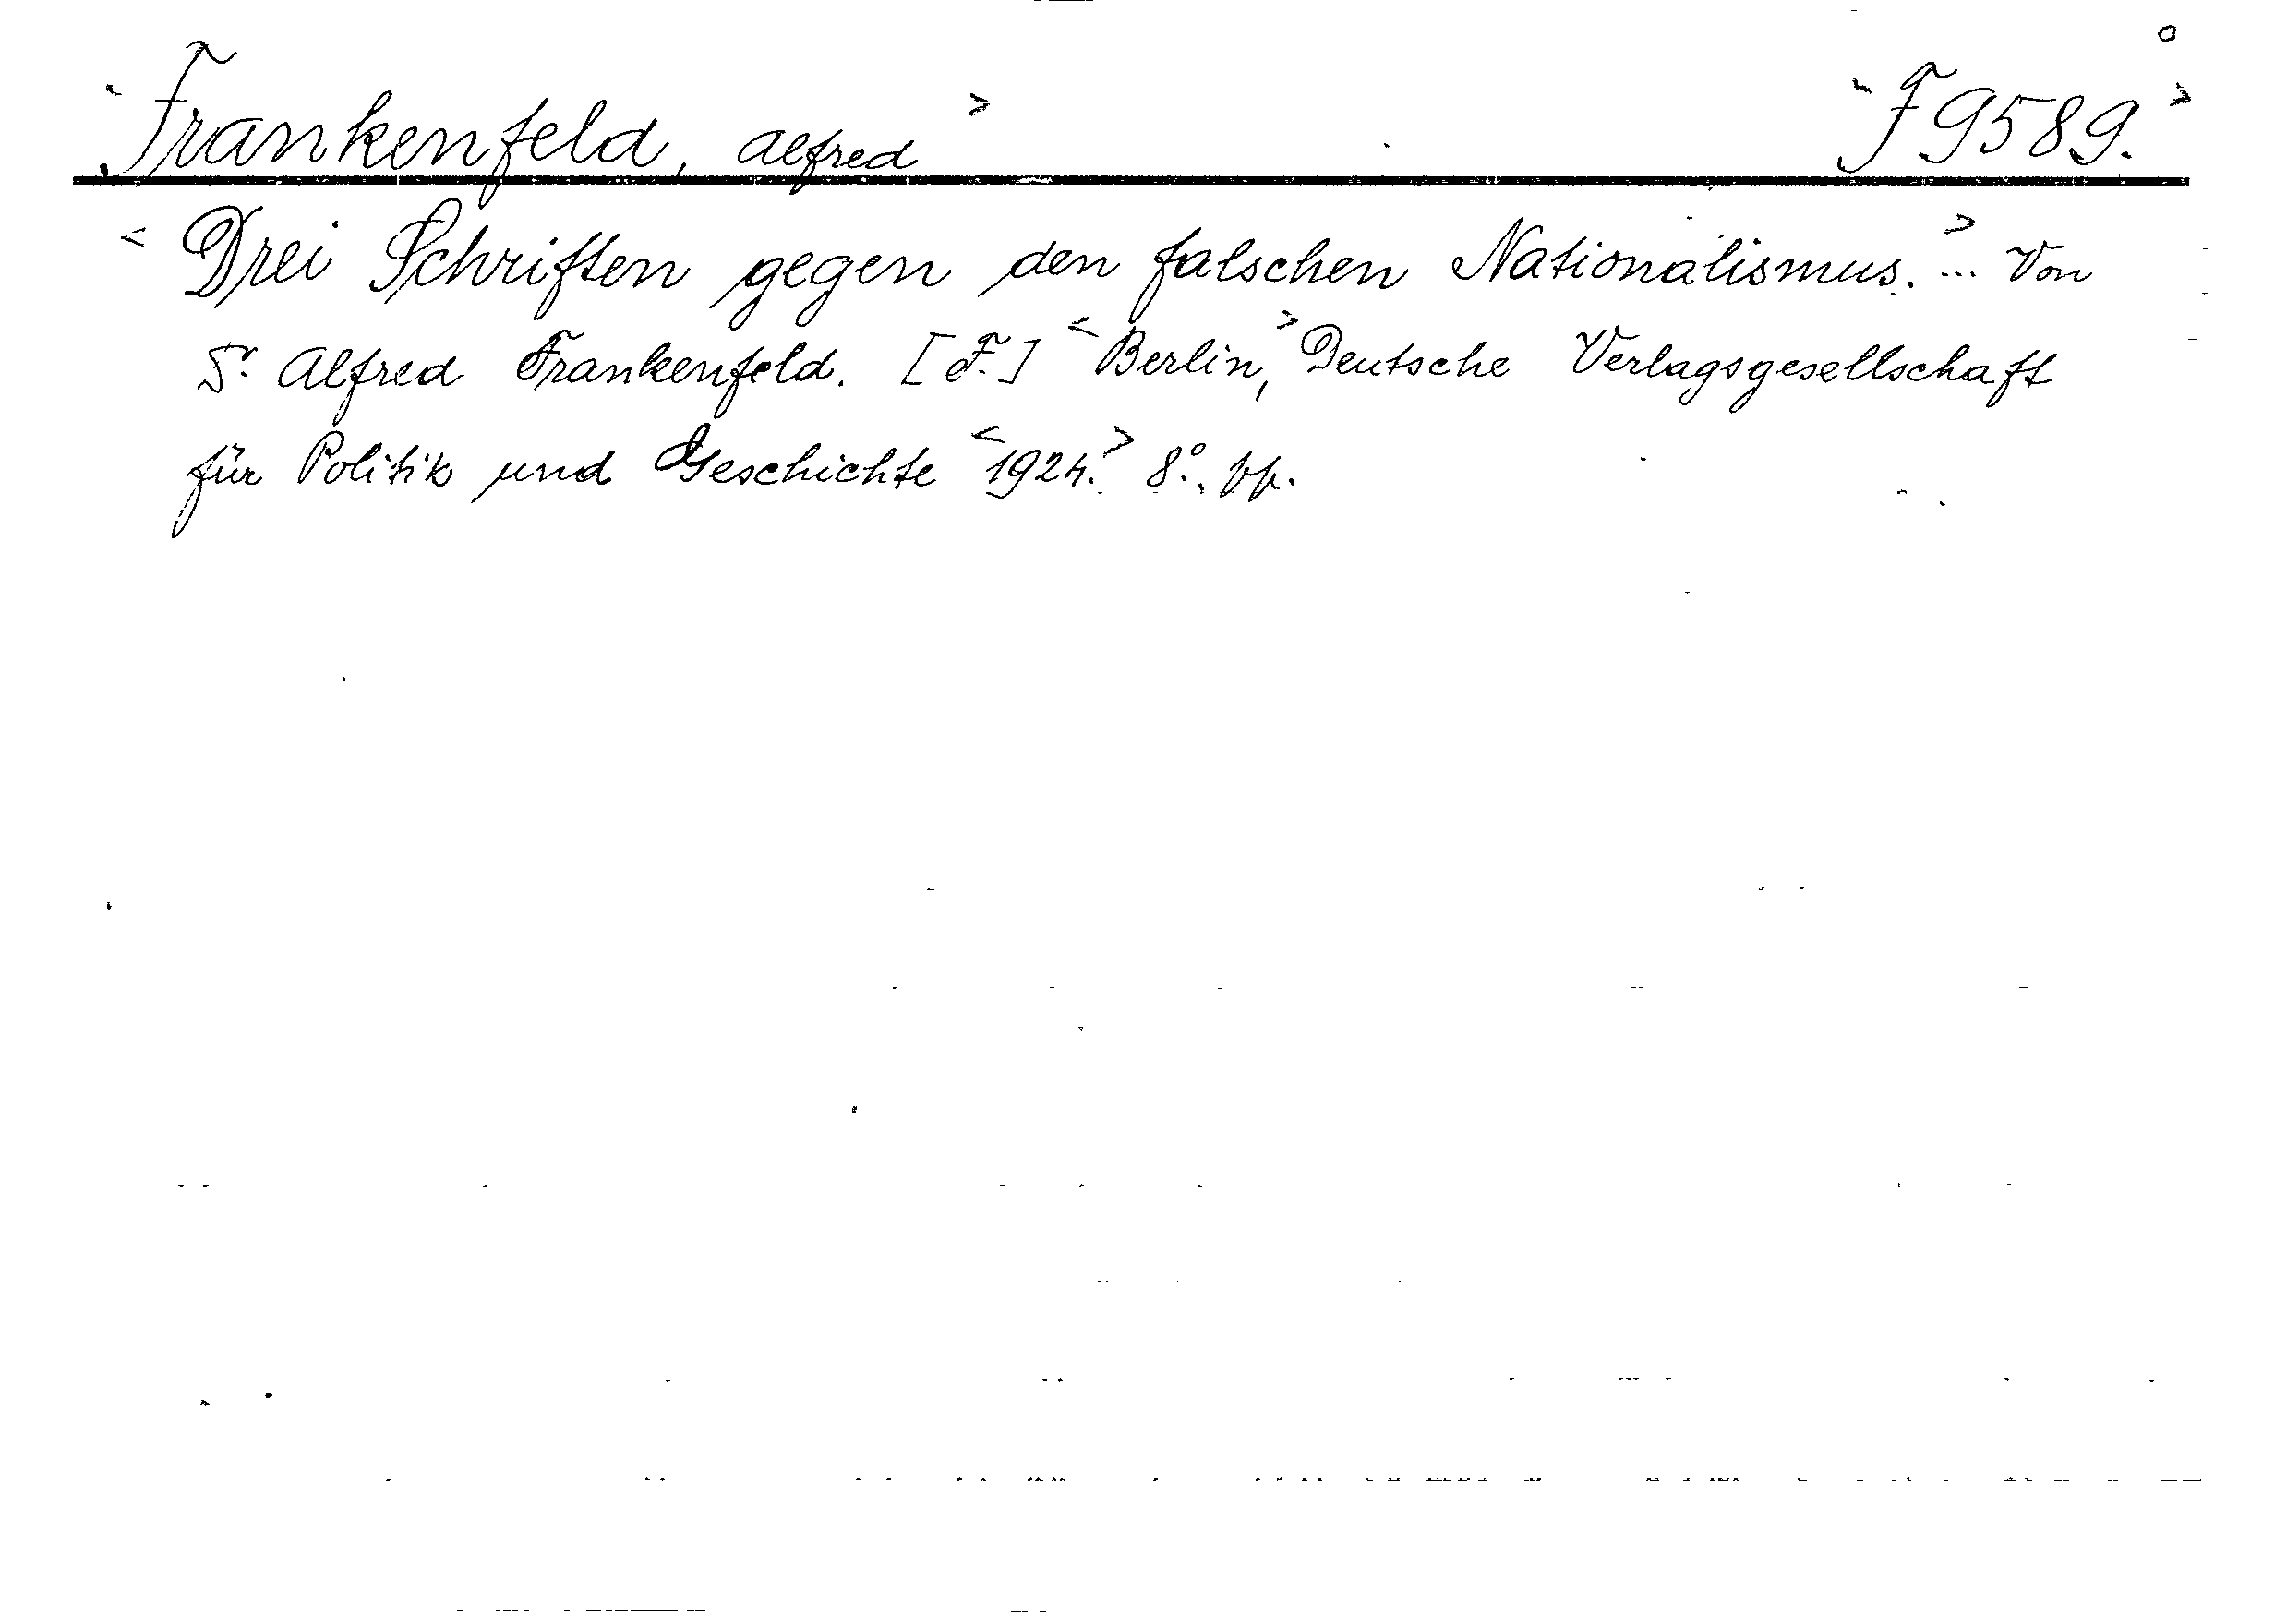 <Frankenfeld, Alfred> <F 9589.>
<Drei Schriften gegen den falschen Nationalismus.> ... Von
Dr. Alfred Frankenfeld. [F.] <Berlin,> Deutsche Verlagsgesellschaft
für Politik und Geschichte <1924.> 8°.